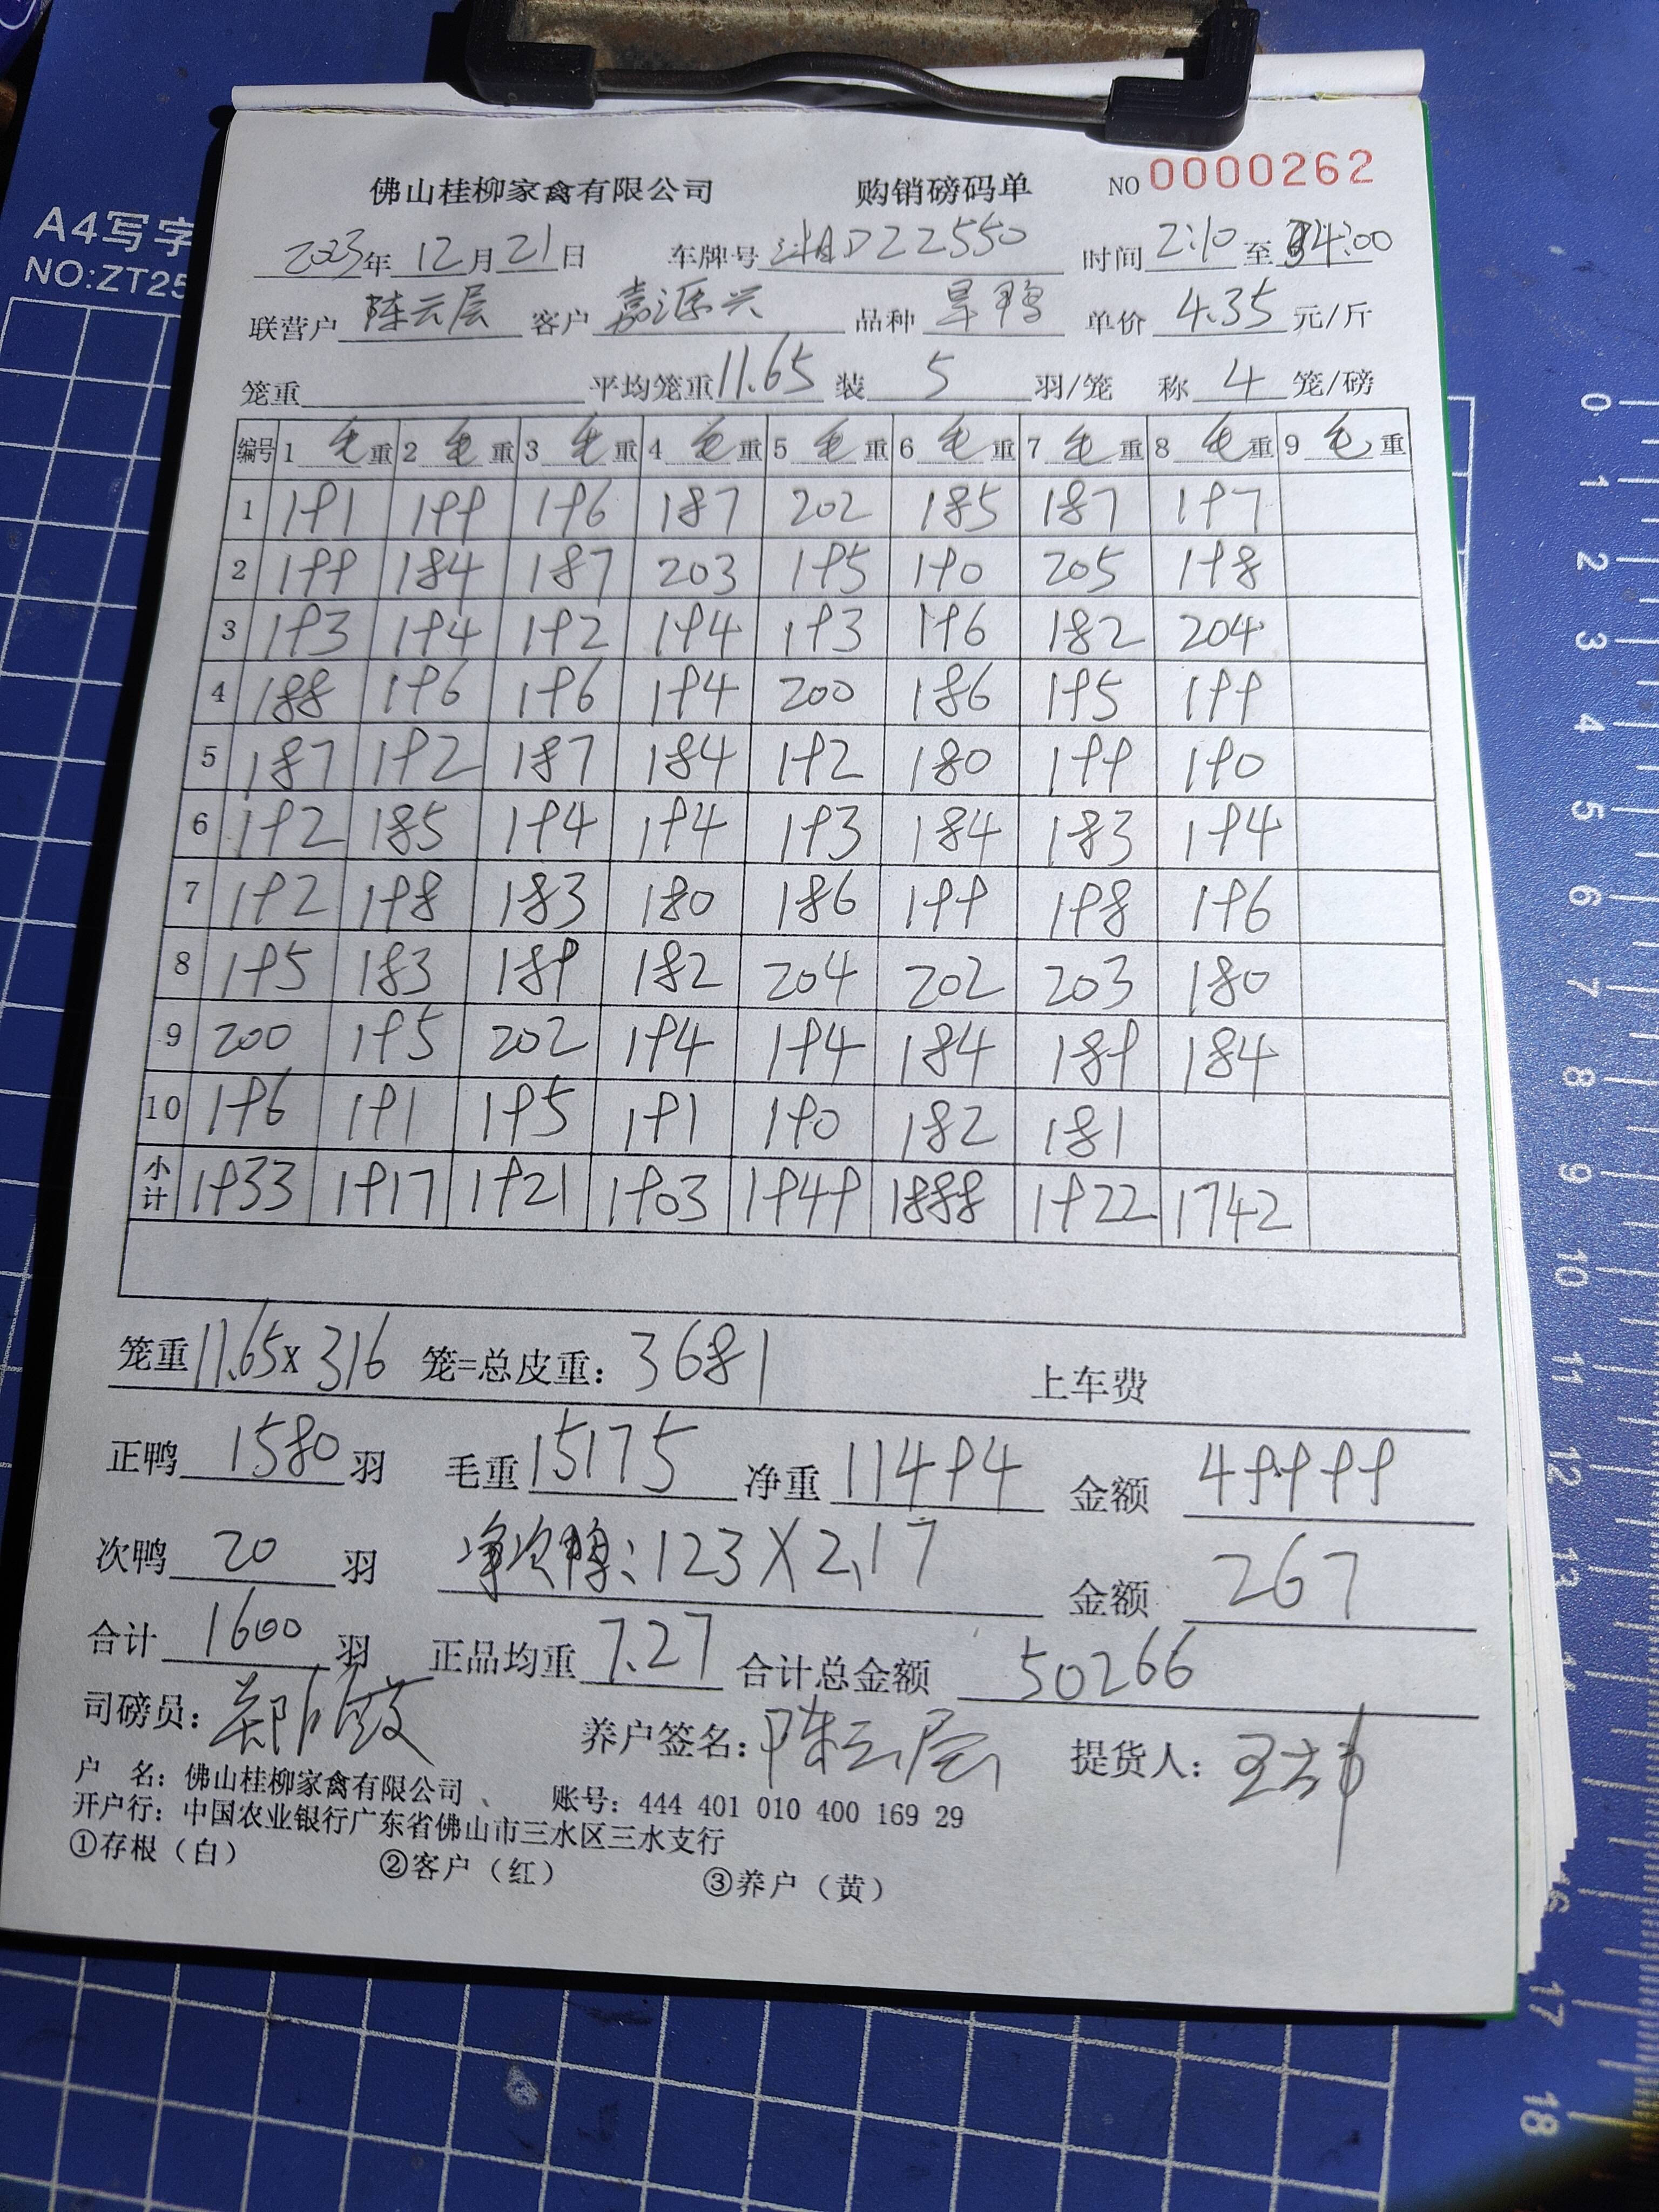 A4写字
NO:ZT25
佛山桂柳家禽有限公司 购销磅码单 NO 0000262
2023年12月21日 车牌号 湘D22550 时间 2:10 至 4:00
联营户 陈云层 客户 嘉源兴 品种 旱鸭 单价 4.35 元/斤
笼重 平均笼重 11.65 装 5 羽/笼 称 4 笼/磅
编号 1 毛重 2 毛重 3 毛重 4 毛重 5 毛重 6 毛重 7 毛重 8 毛重 9 毛重
1 191 199 196 187 202 185 187 197
2 199 184 187 203 195 190 205 198
3 193 194 192 194 193 196 182 204
4 188 196 196 194 200 186 195 199
5 187 192 187 184 192 180 199 190
6 192 185 194 194 193 184 183 194
7 192 198 183 180 186 199 198 196
8 195 183 189 182 204 202 203 180
9 200 195 202 194 194 184 189 184
10 196 191 195 191 190 182 181
小计 1933 1917 1921 1903 1949 1888 1922 1742
笼重 11.65 x 316 笼=总皮重: 3681 上车费
正鸭 1580 羽 毛重 15175 净重 11494 金额 49999
次鸭 20 羽 净次鸭: 123 X 2.17 金额 267
合计 1600 羽 正品均重 7.27 合计总金额 50266
司磅员: 养户签名: 陈云层 提货人:
户 名: 佛山桂柳家禽有限公司 账号: 444 401 010 400 169 29
开户行: 中国农业银行广东省佛山市三水区三水支行
①存根(白) ②客户(红) ③养户(黄)
0
1
2
3
4
5
6
7
8
9
10
11
12
13
14
16
17
18